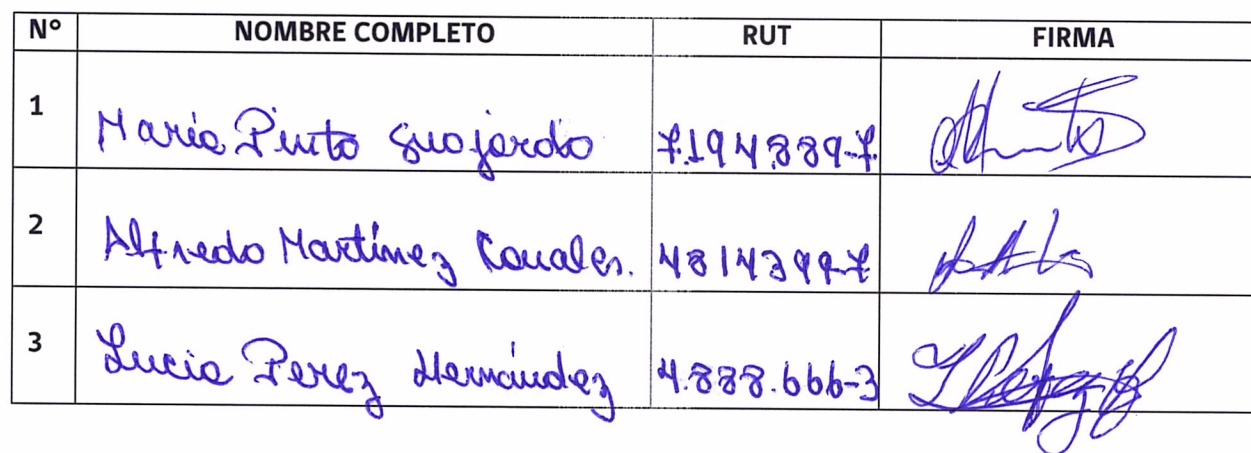 N° NOMBRE COMPLETO RUT FIRMA
1 María Pinto Guajardo 7.194.889-7
2 Alfredo Martínez Canales. 4814399-7
3 Lucia Perez Hernández 4.888.666-3